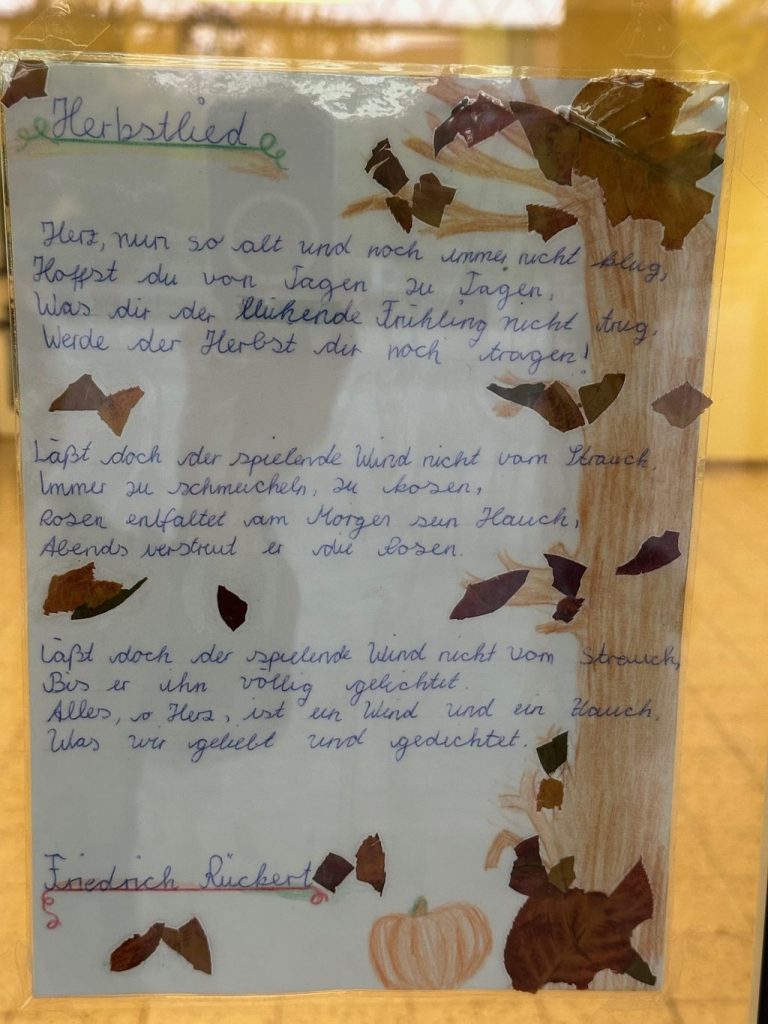 Herbstlied
Herz, nun so alt und noch immer nicht klug,
Hoffst du von Tagen zu Tagen,
Was dir der blühende Frühling nicht trug,
Werde der Herbst dir noch tragen!
Läßt doch der spielende Wind nicht vom Strauch,
Immer zu schmeicheln, zu kosen,
Rosen entfaltet am Morgen sein Hauch,
Abends verstreut er die Rosen.
Läßt doch der spielende Wind nicht vom Strauch,
Bis er ihn völlig gelichtet.
Alles, o Herz, ist ein Wind und ein Hauch,
Was wir geliebt und gedichtet.
Friedrich Rückert